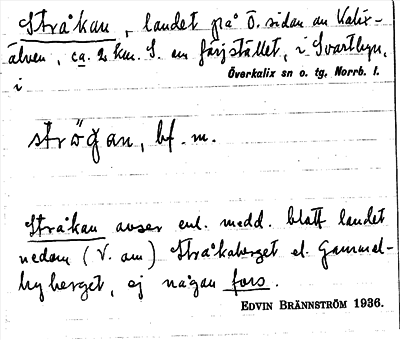 Stråkan, landet på Ö. sidan av Kalix-
älven, ca. 2 km. S. om färjstället, i Svartbyn,
Överkalix sn o. tg, Norrb. l.
i
strögan, bf. m.
Stråkan avser enl. medd. blott landet
nedom (V. om) Stråkaberget el. Gammel-
byberget, ej någon fors.
EDVIN BRÄNNSTRÖM 1936.